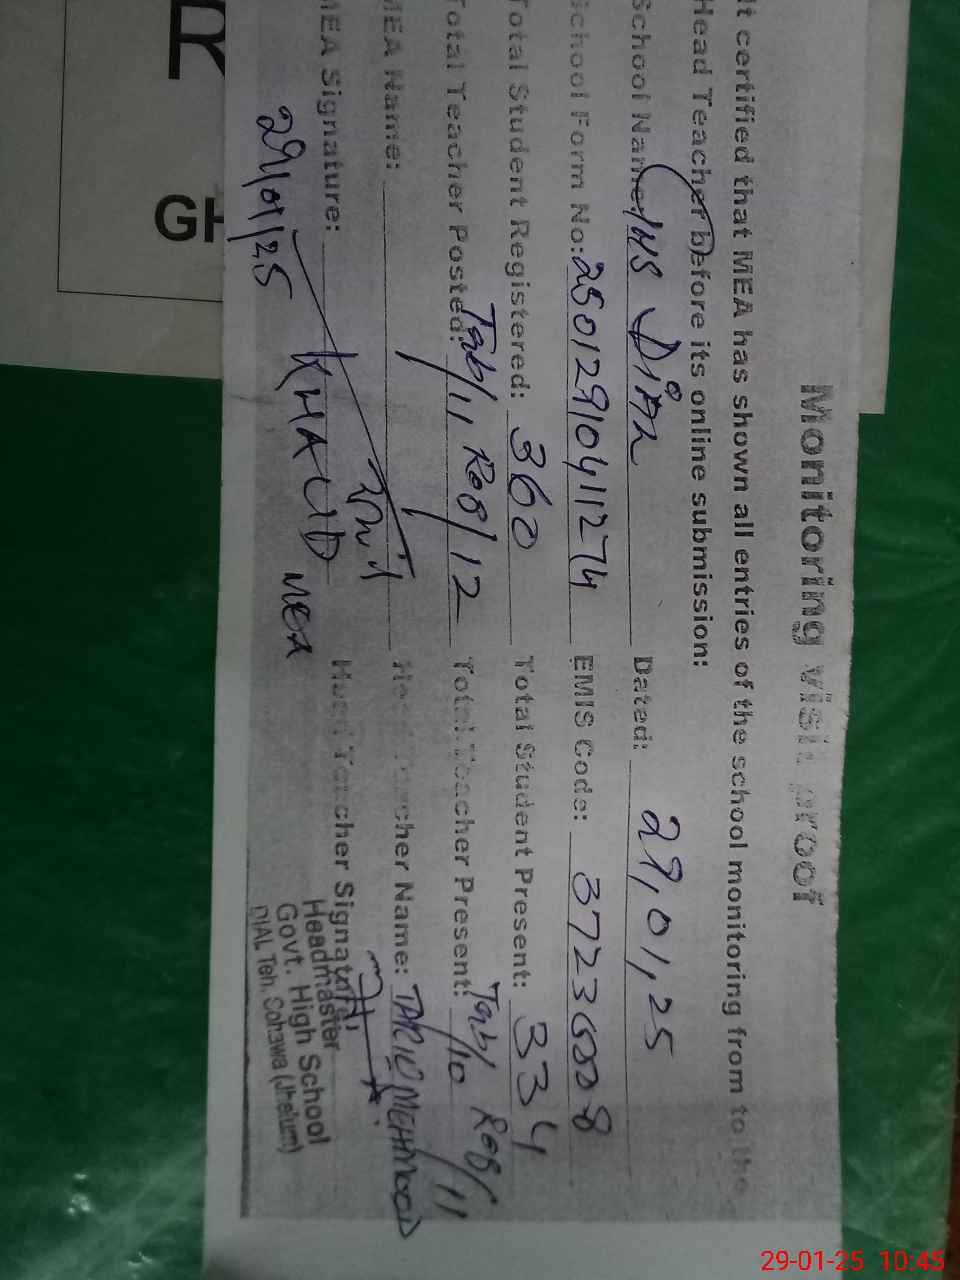 Monitoring visit proof
It certified that MEA has shown all entries of the school monitoring from to the
Head Teacher before its online submission:
School Name: GHS Dial Dated: 29,01,25
School Form No: 25012910411274 EMIS Code:
Total Student Registered: 360 Total Student Present: 334
Total Teacher Posted: Tab/11 Reg/12 Total Teacher Present: Tab/10 Reg/11
MEA Name: Head Teacher Name: TARIQ MEHMOOD
MEA Signature: Head Teacher Signature:
KHALID MEA
29/01/25
Headmaster
Govt. High School
DIAL Teh. Sohawa (Jhelum)
R
GH
29-01-25 10:45